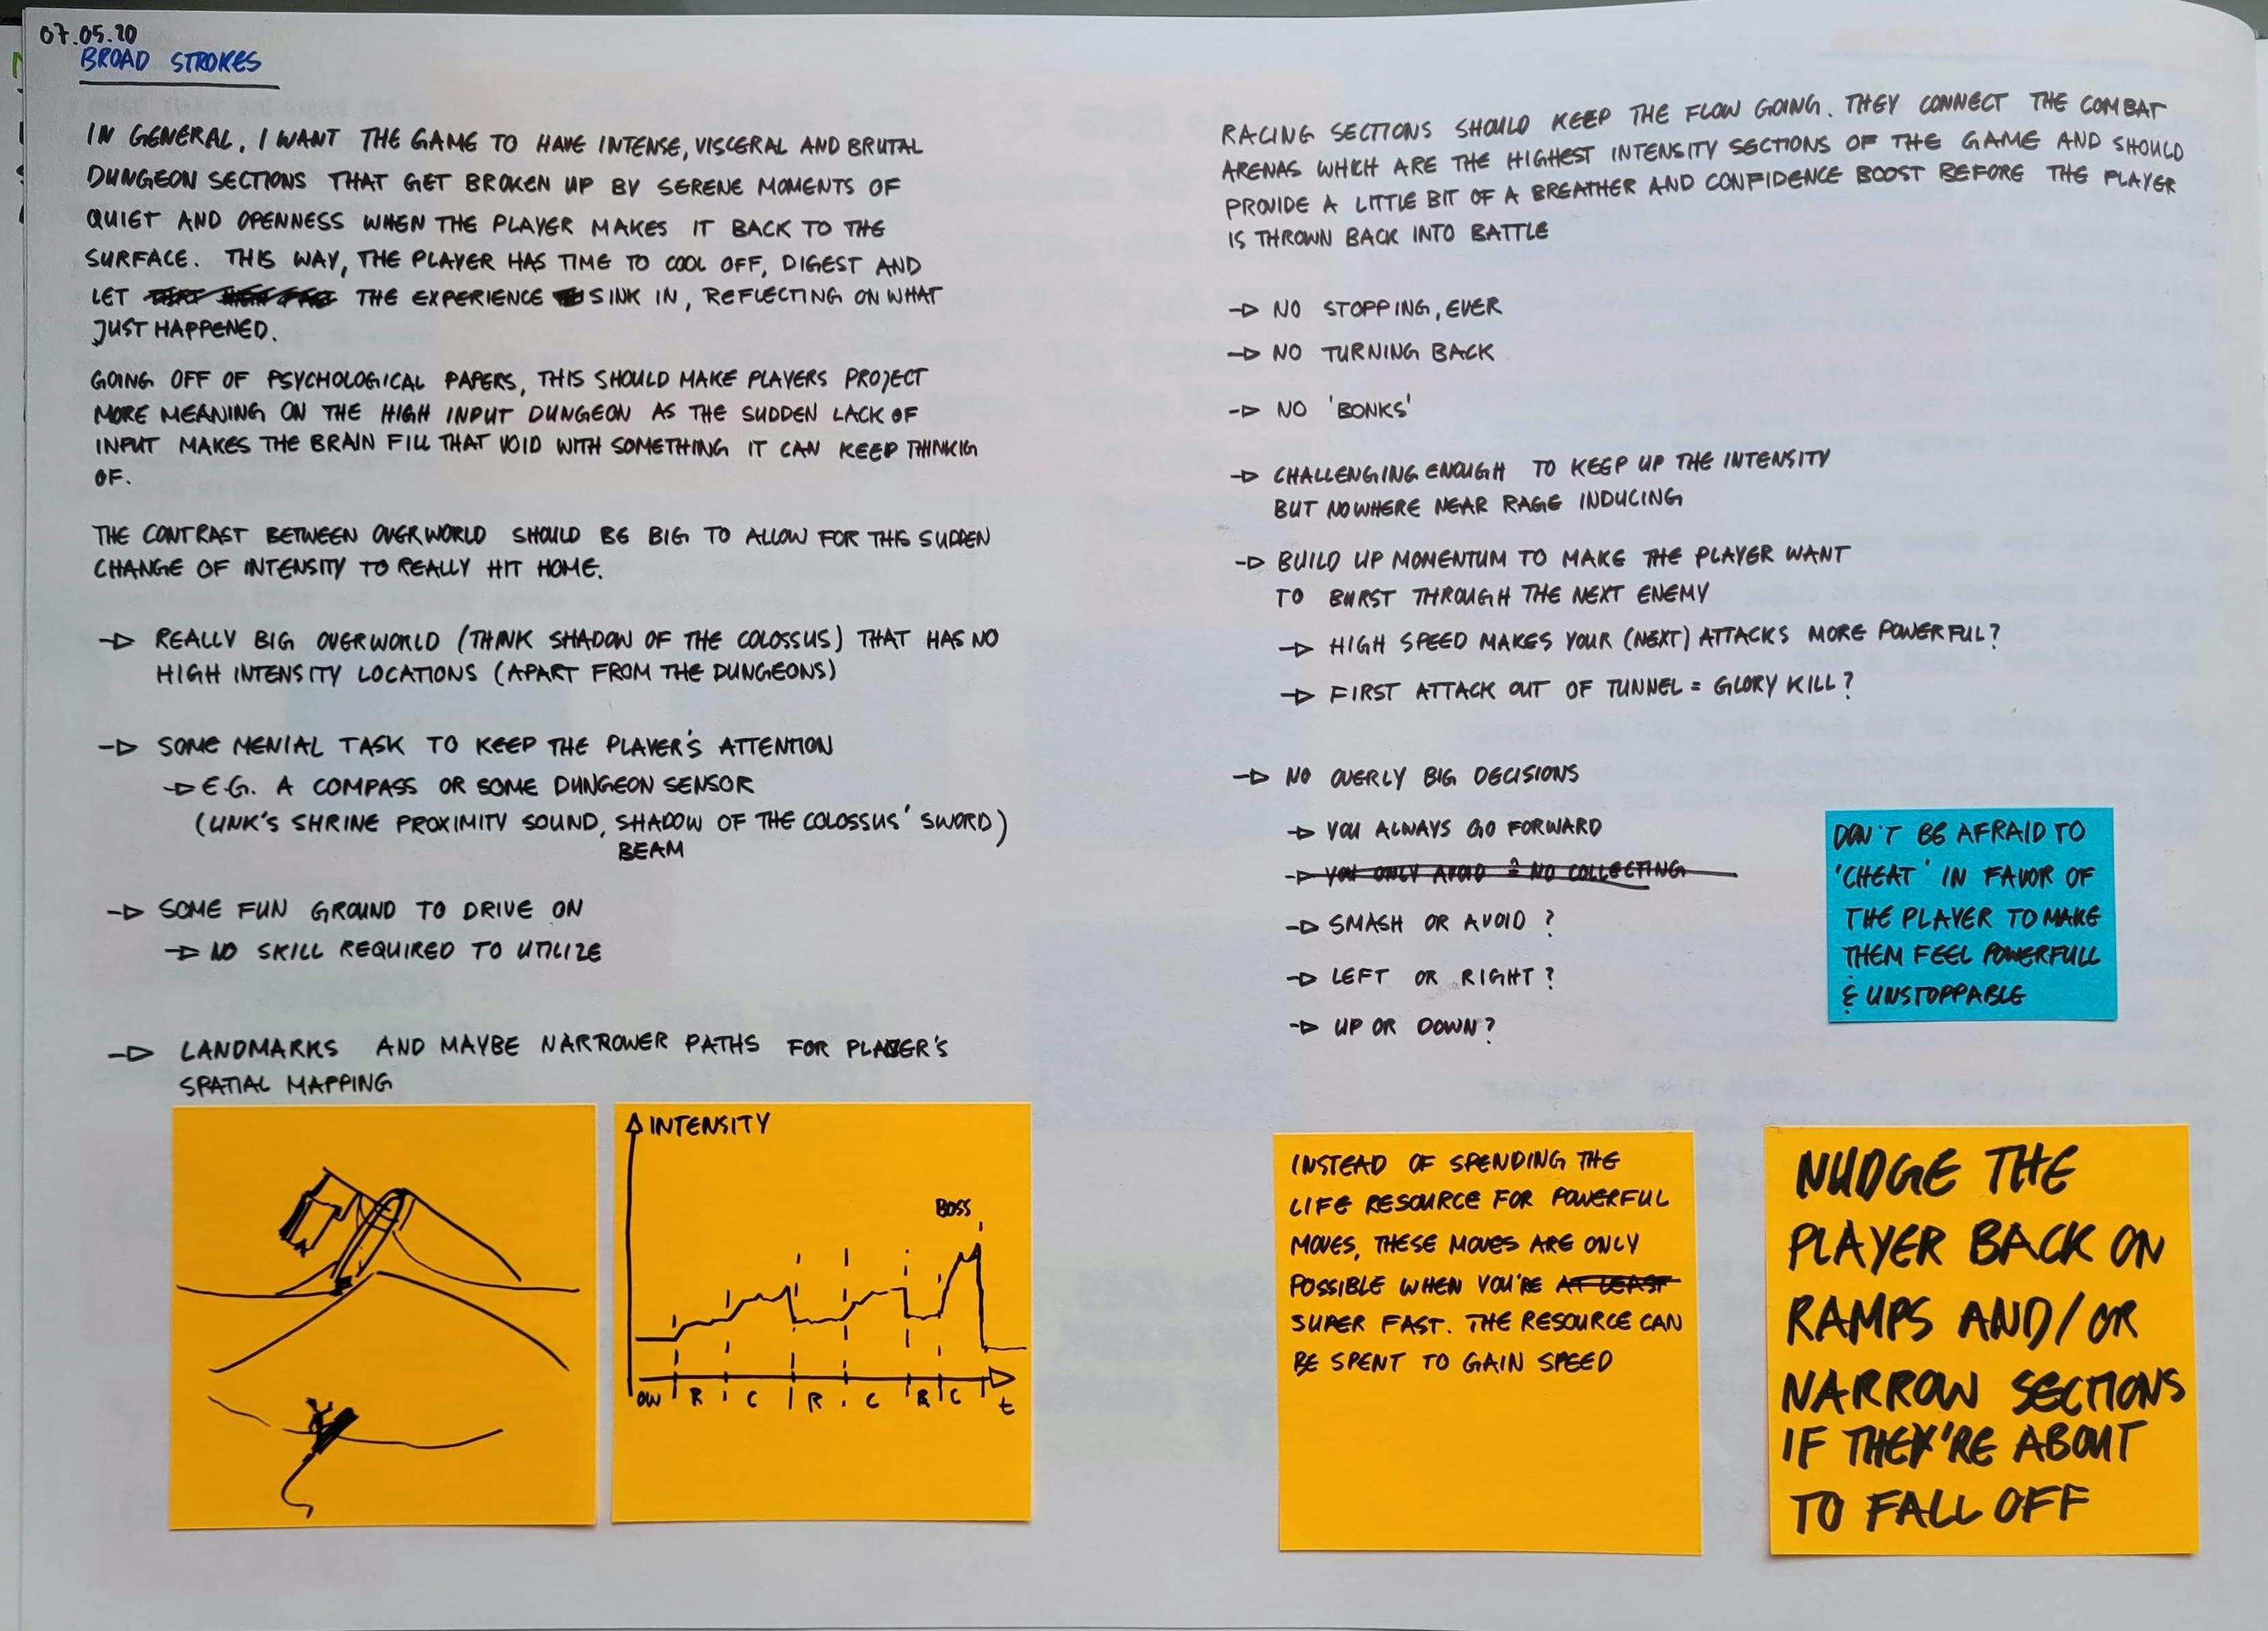 07.05.20
BROAD STROKES
IN GENERAL, I WANT THE GAME TO HAVE INTENSE, VISCERAL AND BRUTAL
DUNGEON SECTIONS THAT GET BROKEN UP BY SERENE MOMENTS OF
QUIET AND OPENNESS WHEN THE PLAYER MAKES IT BACK TO THE
SURFACE. THIS WAY, THE PLAYER HAS TIME TO COOL OFF, DIGEST AND
LET THE EXPERIENCE SINK IN, REFLECTING ON WHAT
JUST HAPPENED.
GOING OFF OF PSYCHOLOGICAL PAPERS, THIS SHOULD MAKE PLAYERS PROJECT
MORE MEANING ON THE HIGH INPUT DUNGEON AS THE SUDDEN LACK OF
INPUT MAKES THE BRAIN FILL THAT VOID WITH SOMETHING IT CAN KEEP THINKIG
OF.
THE CONTRAST BETWEEN OVERWORLD SHOULD BE BIG TO ALLOW FOR THIS SUDDEN
CHANGE OF INTENSITY TO REALLY HIT HOME.
→ REALLY BIG OVERWORLD (THINK SHADOW OF THE COLOSSUS) THAT HAS NO
HIGH INTENSITY LOCATIONS (APART FROM THE DUNGEONS)
→ SOME MENIAL TASK TO KEEP THE PLAYER'S ATTENTION
→ E.G. A COMPASS OR SOME DUNGEON SENSOR
(LINK'S SHRINE PROXIMITY SOUND, SHADOW OF THE COLOSSUS' SWORD)
BEAM
→ SOME FUN GROUND TO DRIVE ON
→ NO SKILL REQUIRED TO UTILIZE
→ LANDMARKS AND MAYBE NARROWER PATHS FOR PLAYER'S
SPATIAL MAPPING
INTENSITY
BOSS
OW R C R C R C t
RACING SECTIONS SHOULD KEEP THE FLOW GOING. THEY CONNECT THE COMBAT
ARENAS WHICH ARE THE HIGHEST INTENSITY SECTIONS OF THE GAME AND SHOULD
PROVIDE A LITTLE BIT OF A BREATHER AND CONFIDENCE BOOST BEFORE THE PLAYER
IS THROWN BACK INTO BATTLE
→ NO STOPPING, EVER
→ NO TURNING BACK
→ NO 'BONKS'
→ CHALLENGING ENOUGH TO KEEP UP THE INTENSITY
BUT NOWHERE NEAR RAGE INDUCING
→ BUILD UP MOMENTUM TO MAKE THE PLAYER WANT
TO BURST THROUGH THE NEXT ENEMY
→ HIGH SPEED MAKES YOUR (NEXT) ATTACKS MORE POWERFUL?
→ FIRST ATTACK OUT OF TUNNEL = GLORY KILL?
→ NO OVERLY BIG DECISIONS
→ YOU ALWAYS GO FORWARD
→ YOU ONLY AVOID ≙ NO COLLECTING
→ SMASH OR AVOID?
→ LEFT OR RIGHT?
→ UP OR DOWN?
DON'T BE AFRAID TO
'CHEAT' IN FAVOR OF
THE PLAYER TO MAKE
THEM FEEL POWERFULL
& UNSTOPPABLE
INSTEAD OF SPENDING THE
LIFE RESOURCE FOR POWERFUL
MOVES, THESE MOVES ARE ONLY
POSSIBLE WHEN YOU'RE AT LEAST
SUPER FAST. THE RESOURCE CAN
BE SPENT TO GAIN SPEED
NUDGE THE
PLAYER BACK ON
RAMPS AND/OR
NARROW SECTIONS
IF THEY'RE ABOUT
TO FALL OFF